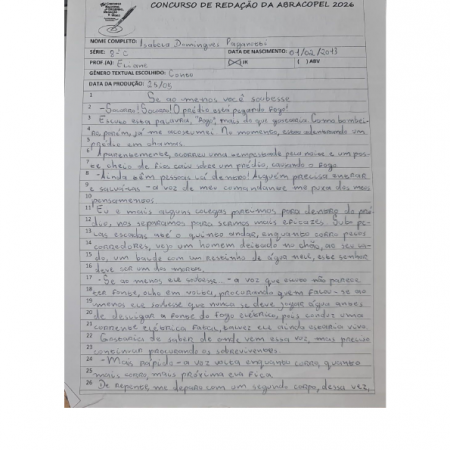 CONCURSO DE REDAÇÃO DA ABRACOPEL 2026
NOME COMPLETO: Isabela Domingues
SÉRIE: 8º C DATA DE NASCIMENTO: 01/02/2013
PROF (A): Eliane (X) IR ( ) ABV
GÊNERO TEXTUAL ESCOLHIDO: Conto
DATA DA PRODUÇÃO: 25/05
1 Se ao menos você soubesse
2 -Socorro! Socorro! O prédio está pegando fogo!
3 Escuto essa palavra, "fogo", mais do que gostaria. Como bombei-
4 ra porém, já me acostumei. No momento, estou adentrando um
5 prédio em chamas.
6 Aparentemente, ocorreu uma tempestade pela noite e um pos-
7 te cheio de fios caiu sobre um prédio, causando o fogo.
8 -Ainda têm pessoas lá dentro! Alguém precisa entrar
9 e salvá-las - a voz de meu comandante me puxa dos meus
10 pensamentos.
11 Eu e mais alguns colegas partimos para dentro do pré-
12 dio, nos separamos para sermos mais eficazes. Subo pe-
13 las escadas até o quinto andar, enquanto corro pelos
14 corredores, vejo um homem deitado no chão, ao seu la-
15 do, um balde com um restinho de água nele, esse senhor
16 deve ser um dos mortos.
17 -Se ao menos ele soubesse - a voz que ouvi não parece
18 ter fonte, olho em volta, procurando quem falou - se ao
19 menos ele soubesse que nunca se deve jogar água antes
20 de desligar a fonte do fogo elétrico, pois conduz uma
21 corrente elétrica fatal, talvez ele ainda estaria vivo.
22 Gostaria de saber de onde vem essa voz, mas preciso
23 continuar procurando os sobreviventes.
24 -Mais rápido - a voz volta enquanto corro, quanto
25 mais corro, mais próxima ela fica.
26 De repente, me deparo com um segundo corpo, dessa vez,